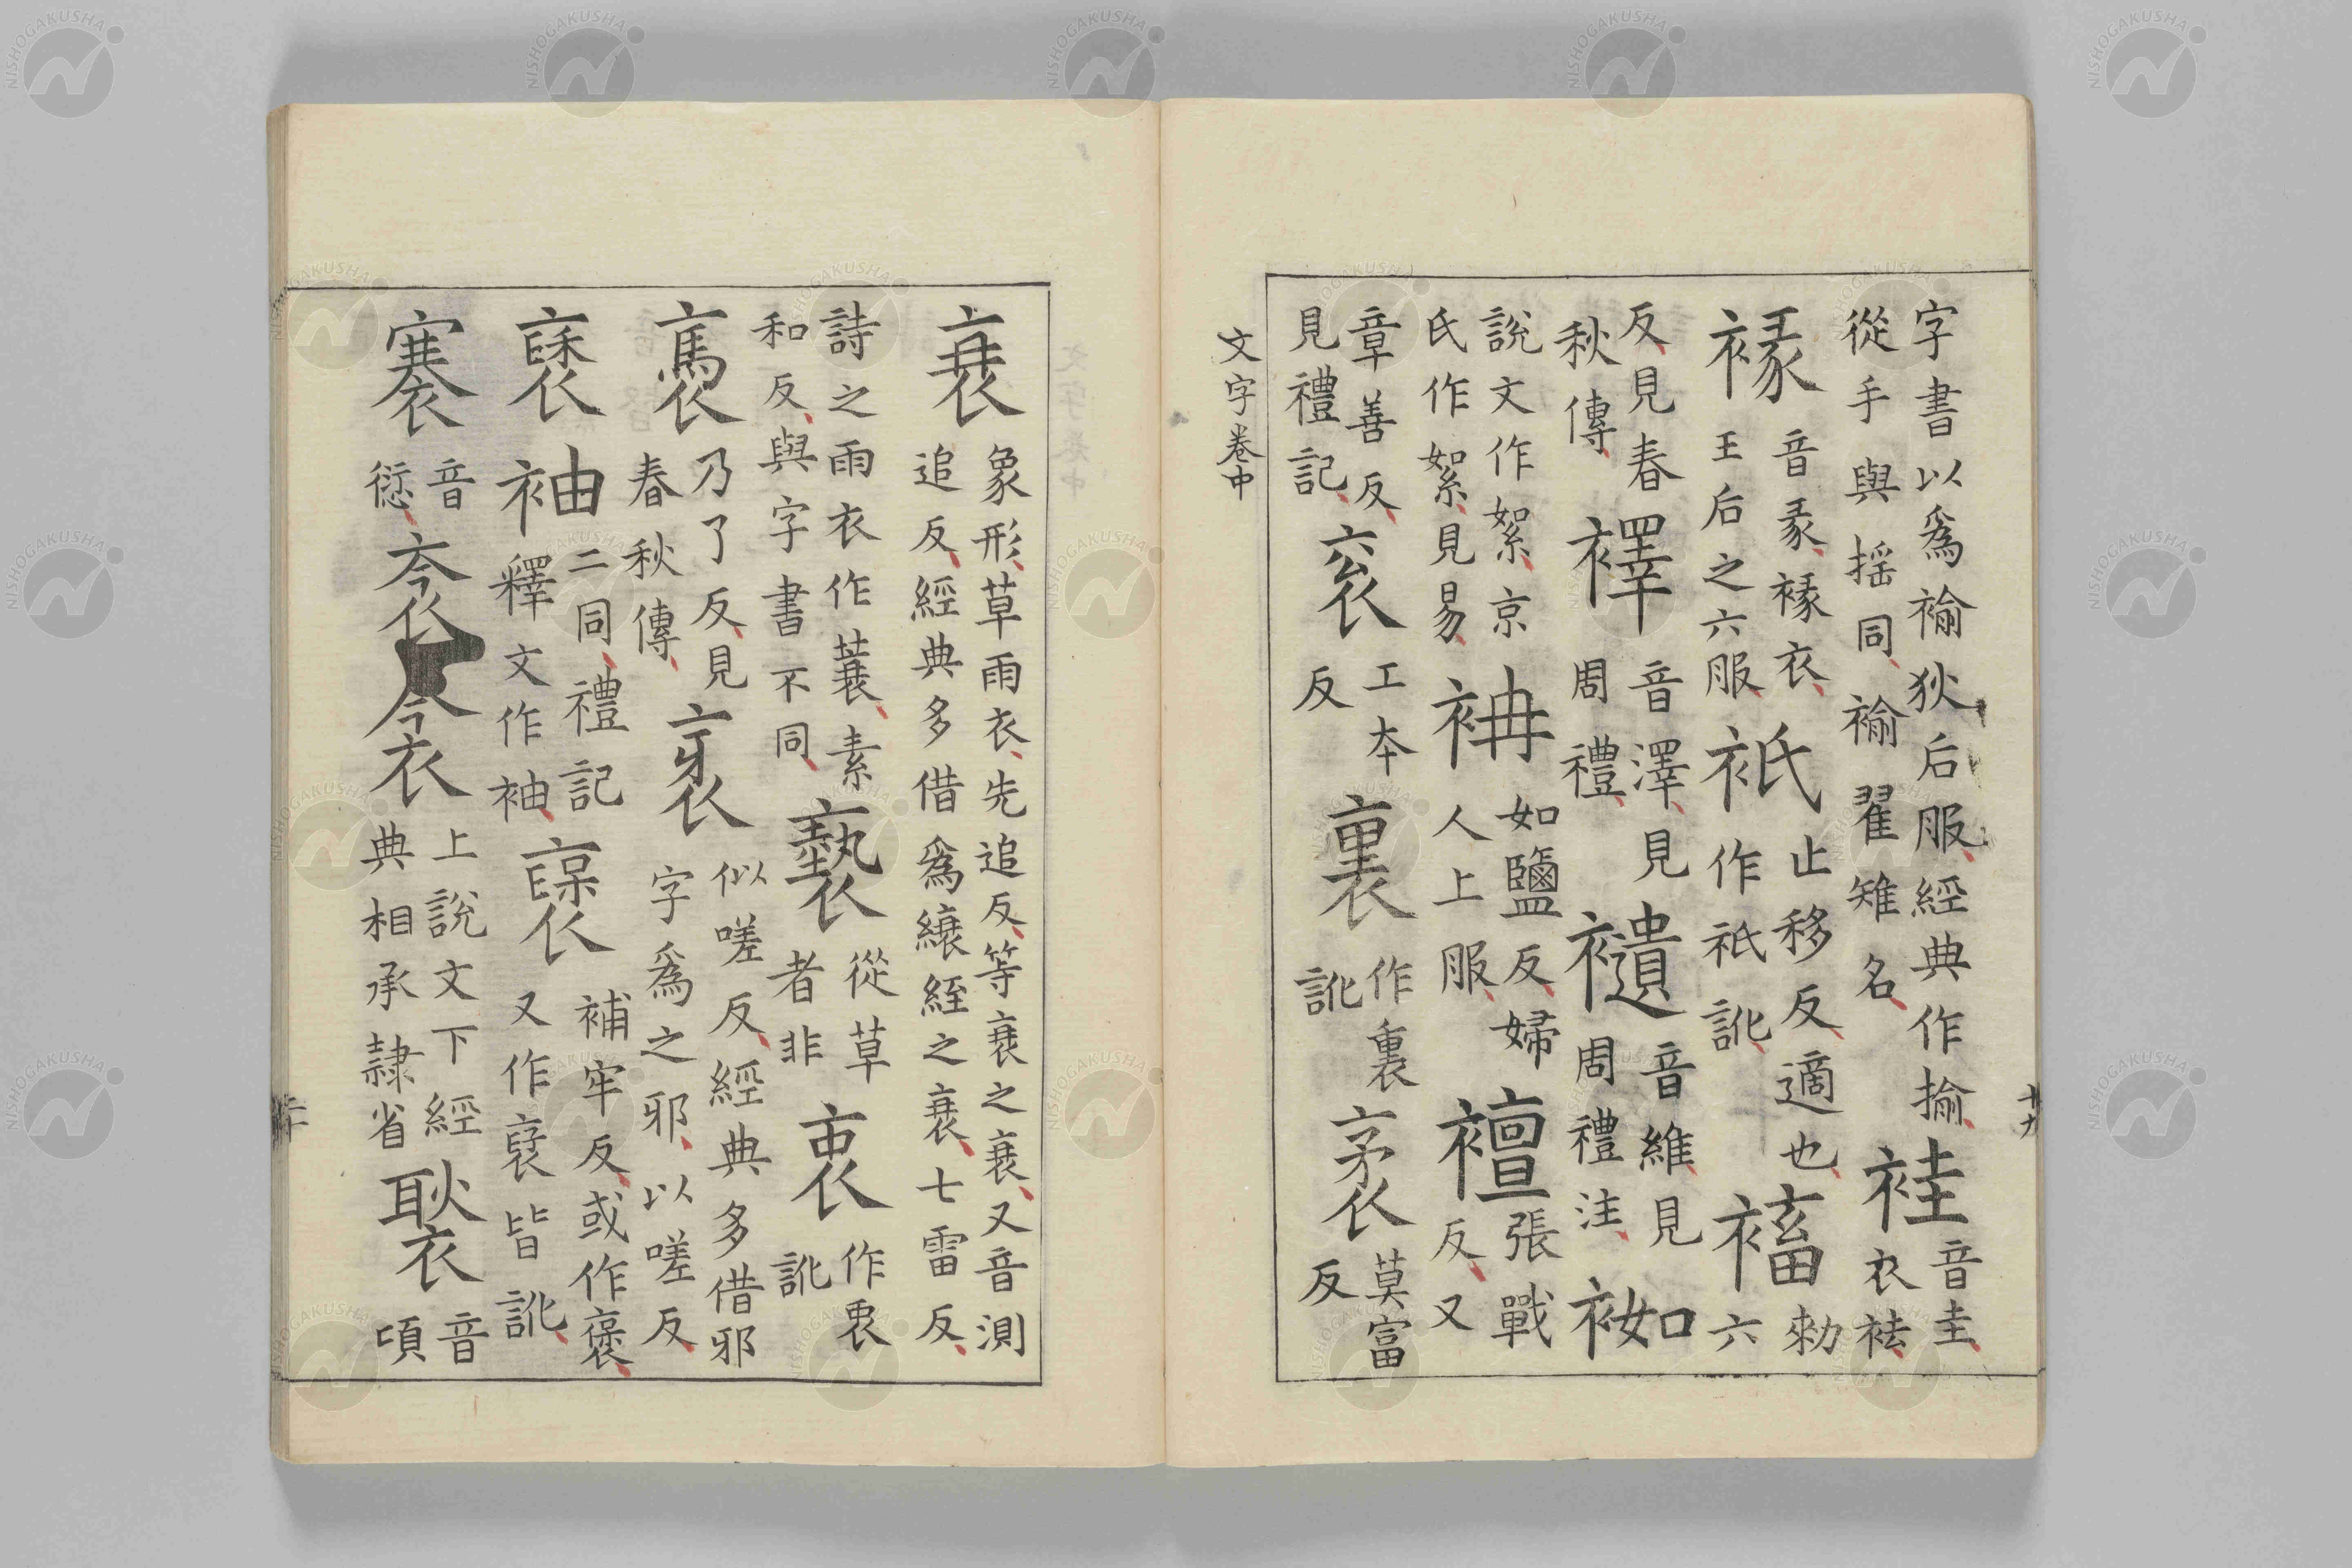 字書以爲褕狄后服經典作揄從手與揺同褕翟雉名袿音圭衣袪
褖音彖褖衣王后之六服衹止移反適也作祇訛𧛧勅六
反見春秋傳襗音澤見周禮𧞸音維見周禮注袽
說文作絮京氏作絮見易袡如鹽反婦人上服襢張戰反又
章善反見禮記衮工本反裏作裏訛袤莫富反
文字卷中
十九
衰象形草雨衣先追反等衰之衰又音測追反經典多借爲縗絰之衰七雷反
詩之雨衣作蓑素和反與字書不同褻從草者非衷作衷訛
褭乃了反見春秋傳衺似嗟反經典多借邪字爲之邪以嗟反
褎袖二同禮記釋文作袖襃補牢反或作褒又作裦皆訛
褰音愆衾衾上說文下經典相承隸省褧音頃